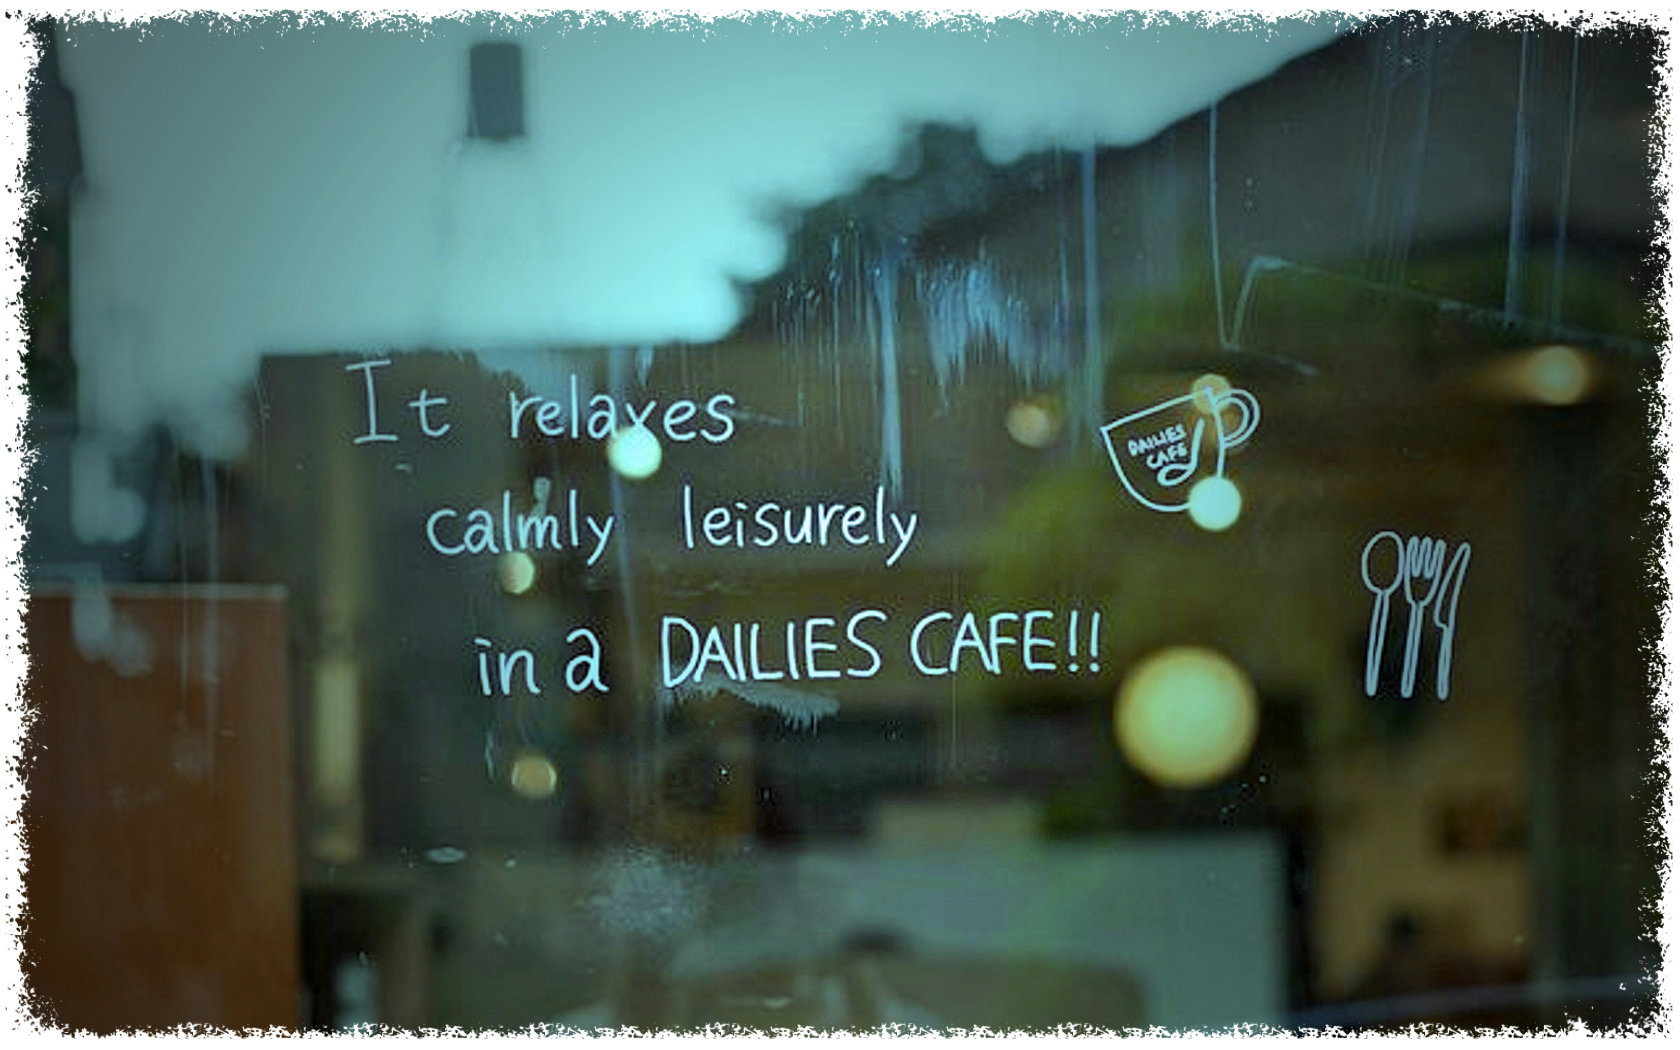 It relaxes
calmly leisurely
in a DAILIES CAFE!!
DAILIES
CAFE